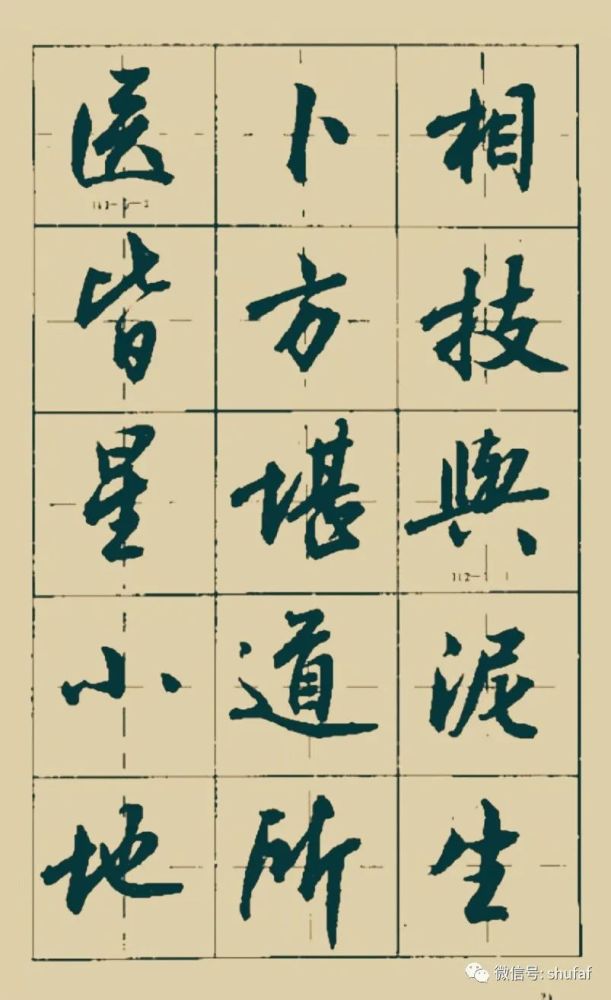 医卜相
皆方技
星堪舆
小道泥
地所生
微信号: shufaf